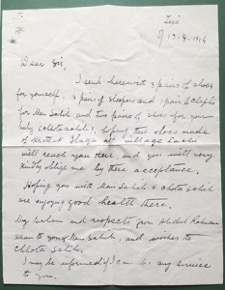 17-8-1916
Dear Sir,
I send herewith 3 pairs of shoes
for yourself, 2 pairs of slippers and 1 pair of chapli
for Mem Sahib and two pairs of shoes for your
baby (chhota sahib), hoping that shoes made
at village
will reach you there and you will very
kindly oblige me by there acceptance.
Hoping you with Mem Sahib & chota sahib
are enjoying good health there.
My salam and respects from Abdul Rahman
Khan to you & Mem Sahib, and wishes to
chhota sahib.
I may be informed if I can do any service
to you.